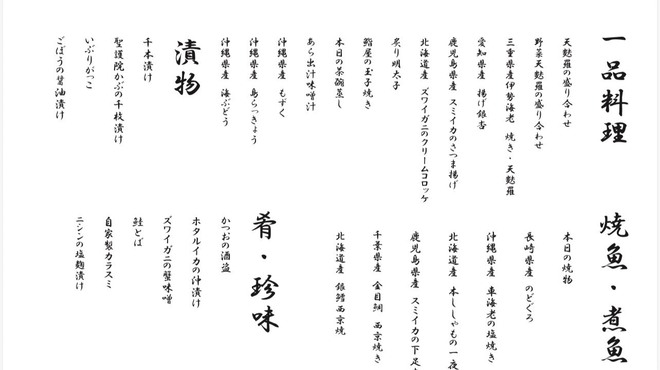 一品料理
天麩羅の盛り合わせ
野菜天麩羅の盛り合わせ
三重県産伊勢海老 焼き・天麩羅
愛知県産 揚げ銀杏
鹿児島県産 スミイカのさつま揚げ
北海道産 ズワイガニのクリームコロッケ
炙り明太子
鮨屋の玉子焼き
本日の茶碗蒸し
あら出汁味噌汁
沖縄県産 もずく
沖縄県産 島らっきょう
沖縄県産 海ぶどう
漬物
千本漬け
聖護院かぶの千枚漬け
いぶりがっこ
ごぼうの醤油漬け
焼魚・煮魚
本日の焼物
長崎県産 のどぐろ
沖縄県産 車海老の塩焼き
北海道産 本ししゃもの一夜
鹿児島県産 スミイカの下足
千葉県産 金目鯛 西京焼き
北海道産 銀鱈西京焼
肴・珍味
かつおの酒盗
ホタルイカの沖漬け
ズワイガニの蟹味噌
鮭とば
自家製カラスミ
ニシンの塩麹漬け